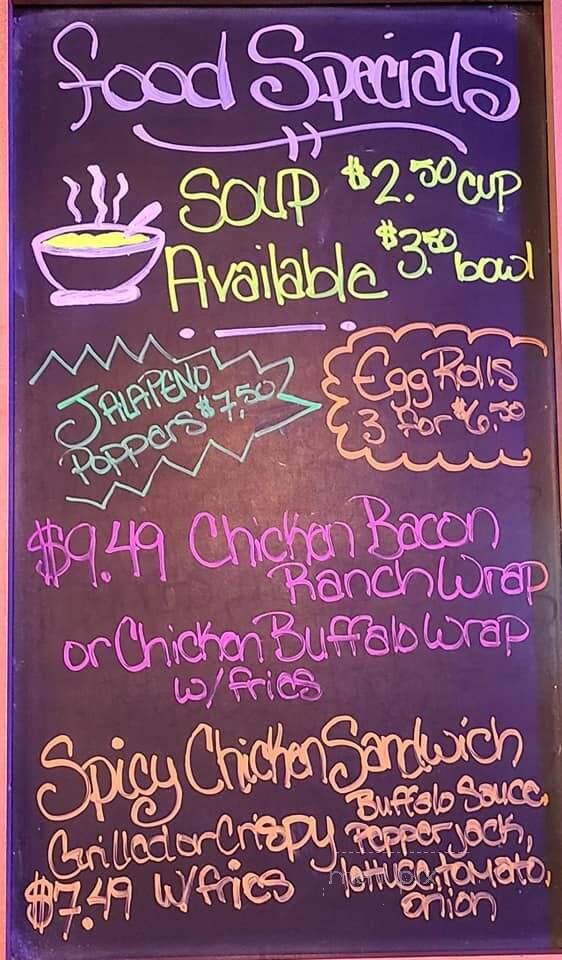 food Specials
SOUP $2.50 cup
Available $3.50 bowl
JALAPENO
POPPERS $7.50
Egg Rolls
3 for $6.50
$9.49 Chicken Bacon
Ranch Wrap
or Chicken Buffalo Wrap
w/ fries
Spicy Chicken Sandwich
Grilled or Crispy
$7.49 w/ fries
Buffalo Sauce,
Pepperjack,
lettuce, tomato,
onion